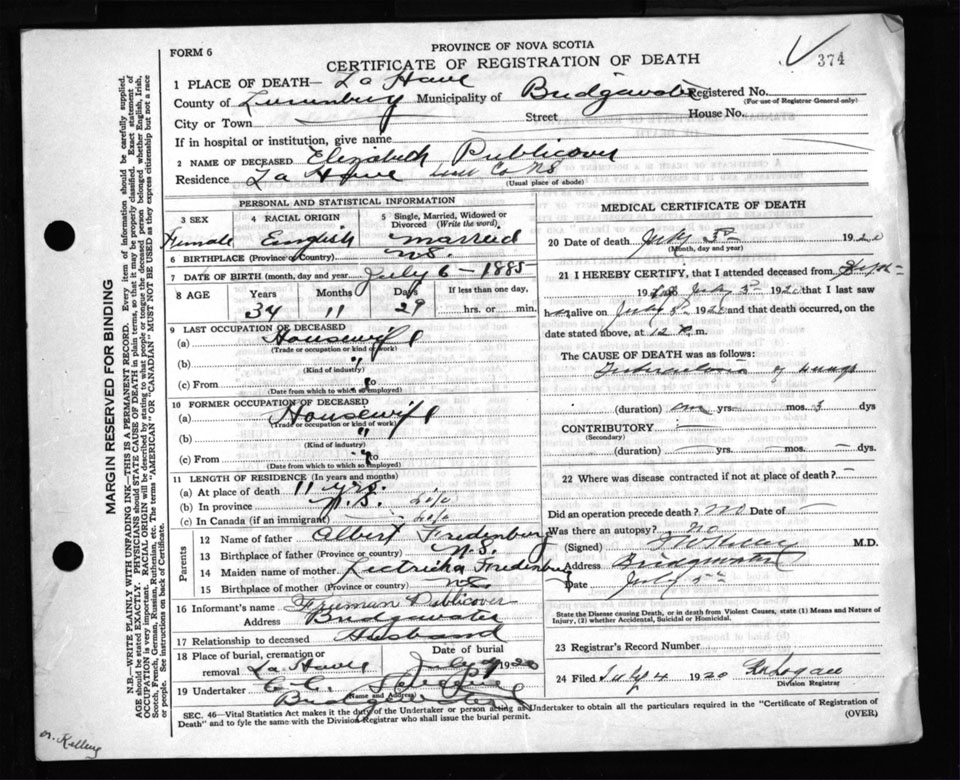 FORM 6
PROVINCE OF NOVA SCOTIA
CERTIFICATE OF REGISTRATION OF DEATH
374
1 PLACE OF DEATH— La Have
County of Lunenburg Municipality of Bridgewater Registered No.
(For use of Registrar General only)
City or Town Street House No.
If in hospital or institution, give name
2 NAME OF DECEASED Elizabeth Publicover
Residence La Have Lun Co NS
(Usual place of abode)
PERSONAL AND STATISTICAL INFORMATION
3 SEX 4 RACIAL ORIGIN 5 Single, Married, Widowed or Divorced (Write the word).
Female English married
6 BIRTHPLACE (Province or Country) N.S.
7 DATE OF BIRTH (month, day and year) July 6 - 1885
8 AGE Years Months Days If less than one day,
34 11 29 hrs. or min.
9 LAST OCCUPATION OF DECEASED
(a) Housewife
(Trade or occupation or kind of work)
(b) "
(Kind of industry)
(c) From to
(Date from which to which so employed)
10 FORMER OCCUPATION OF DECEASED
(a) Housewife
(Trade or occupation or kind of work)
(b) "
(Kind of industry)
(c) From to
(Date from which to which so employed)
11 LENGTH OF RESIDENCE (In years and months)
(a) At place of death 11 yrs.
(b) In province N.S. life
(c) In Canada (if an immigrant) life
Parents
12 Name of father Albert Fredenburg
13 Birthplace of father (Province or country) N.S.
14 Maiden name of mother Fredenburg
15 Birthplace of mother (Province or country) N.S.
16 Informant's name Freeman Publicover
Address Bridgewater
17 Relationship to deceased Husband
18 Place of burial, cremation or removal La Have
Date of burial July 1920
19 Undertaker E. C.
(Name and Address)
Bridgewater
MEDICAL CERTIFICATE OF DEATH
20 Date of death July 5th 1920
(Month, day and year)
21 I HEREBY CERTIFY, that I attended deceased from Sept
19 to July 5 1920 that I last saw
her alive on July 5 1920 and that death occurred, on the
date stated above, at 12 m.
The CAUSE OF DEATH was as follows:
Tuberculosis of Lungs
(duration) one yrs. mos. 3 dys
CONTRIBUTORY
(Secondary)
(duration) yrs. mos. dys.
22 Where was disease contracted if not at place of death?
Did an operation precede death? No Date of
Was there an autopsy? No
(Signed) M.D.
Address Bridgewater
Date July 5th
State the Disease causing Death, or in death from Violent Causes, state (1) Means and Nature of Injury, (2) whether Accidental, Suicidal or Homicidal.
23 Registrar's Record Number
24 Filed July 4 1920
Division Registrar
SEC. 46—Vital Statistics Act makes it the duty of the Undertaker or person acting as Undertaker to obtain all the particulars required in the "Certificate of Registration of
Death" and to fyle the same with the Division Registrar who shall issue the burial permit.
(OVER)
MARGIN RESERVED FOR BINDING
N.B.—WRITE PLAINLY WITH UNFADING INK—THIS IS A PERMANENT RECORD. Every item of information should be carefully supplied.
AGE should be stated EXACTLY. PHYSICIANS should STATE CAUSE OF DEATH in plain terms, so that it may be properly classified. Exact statement of
OCCUPATION is very important. RACIAL ORIGIN will be described by stating to what people or tongue the deceased person belonged whether English, Irish,
Scotch, French, German, Russian, Ruthenian, etc. The terms "AMERICAN" or "CANADIAN" MUST NOT BE USED as they express citizenship but not a race
or people. See instructions on back of Certificate.